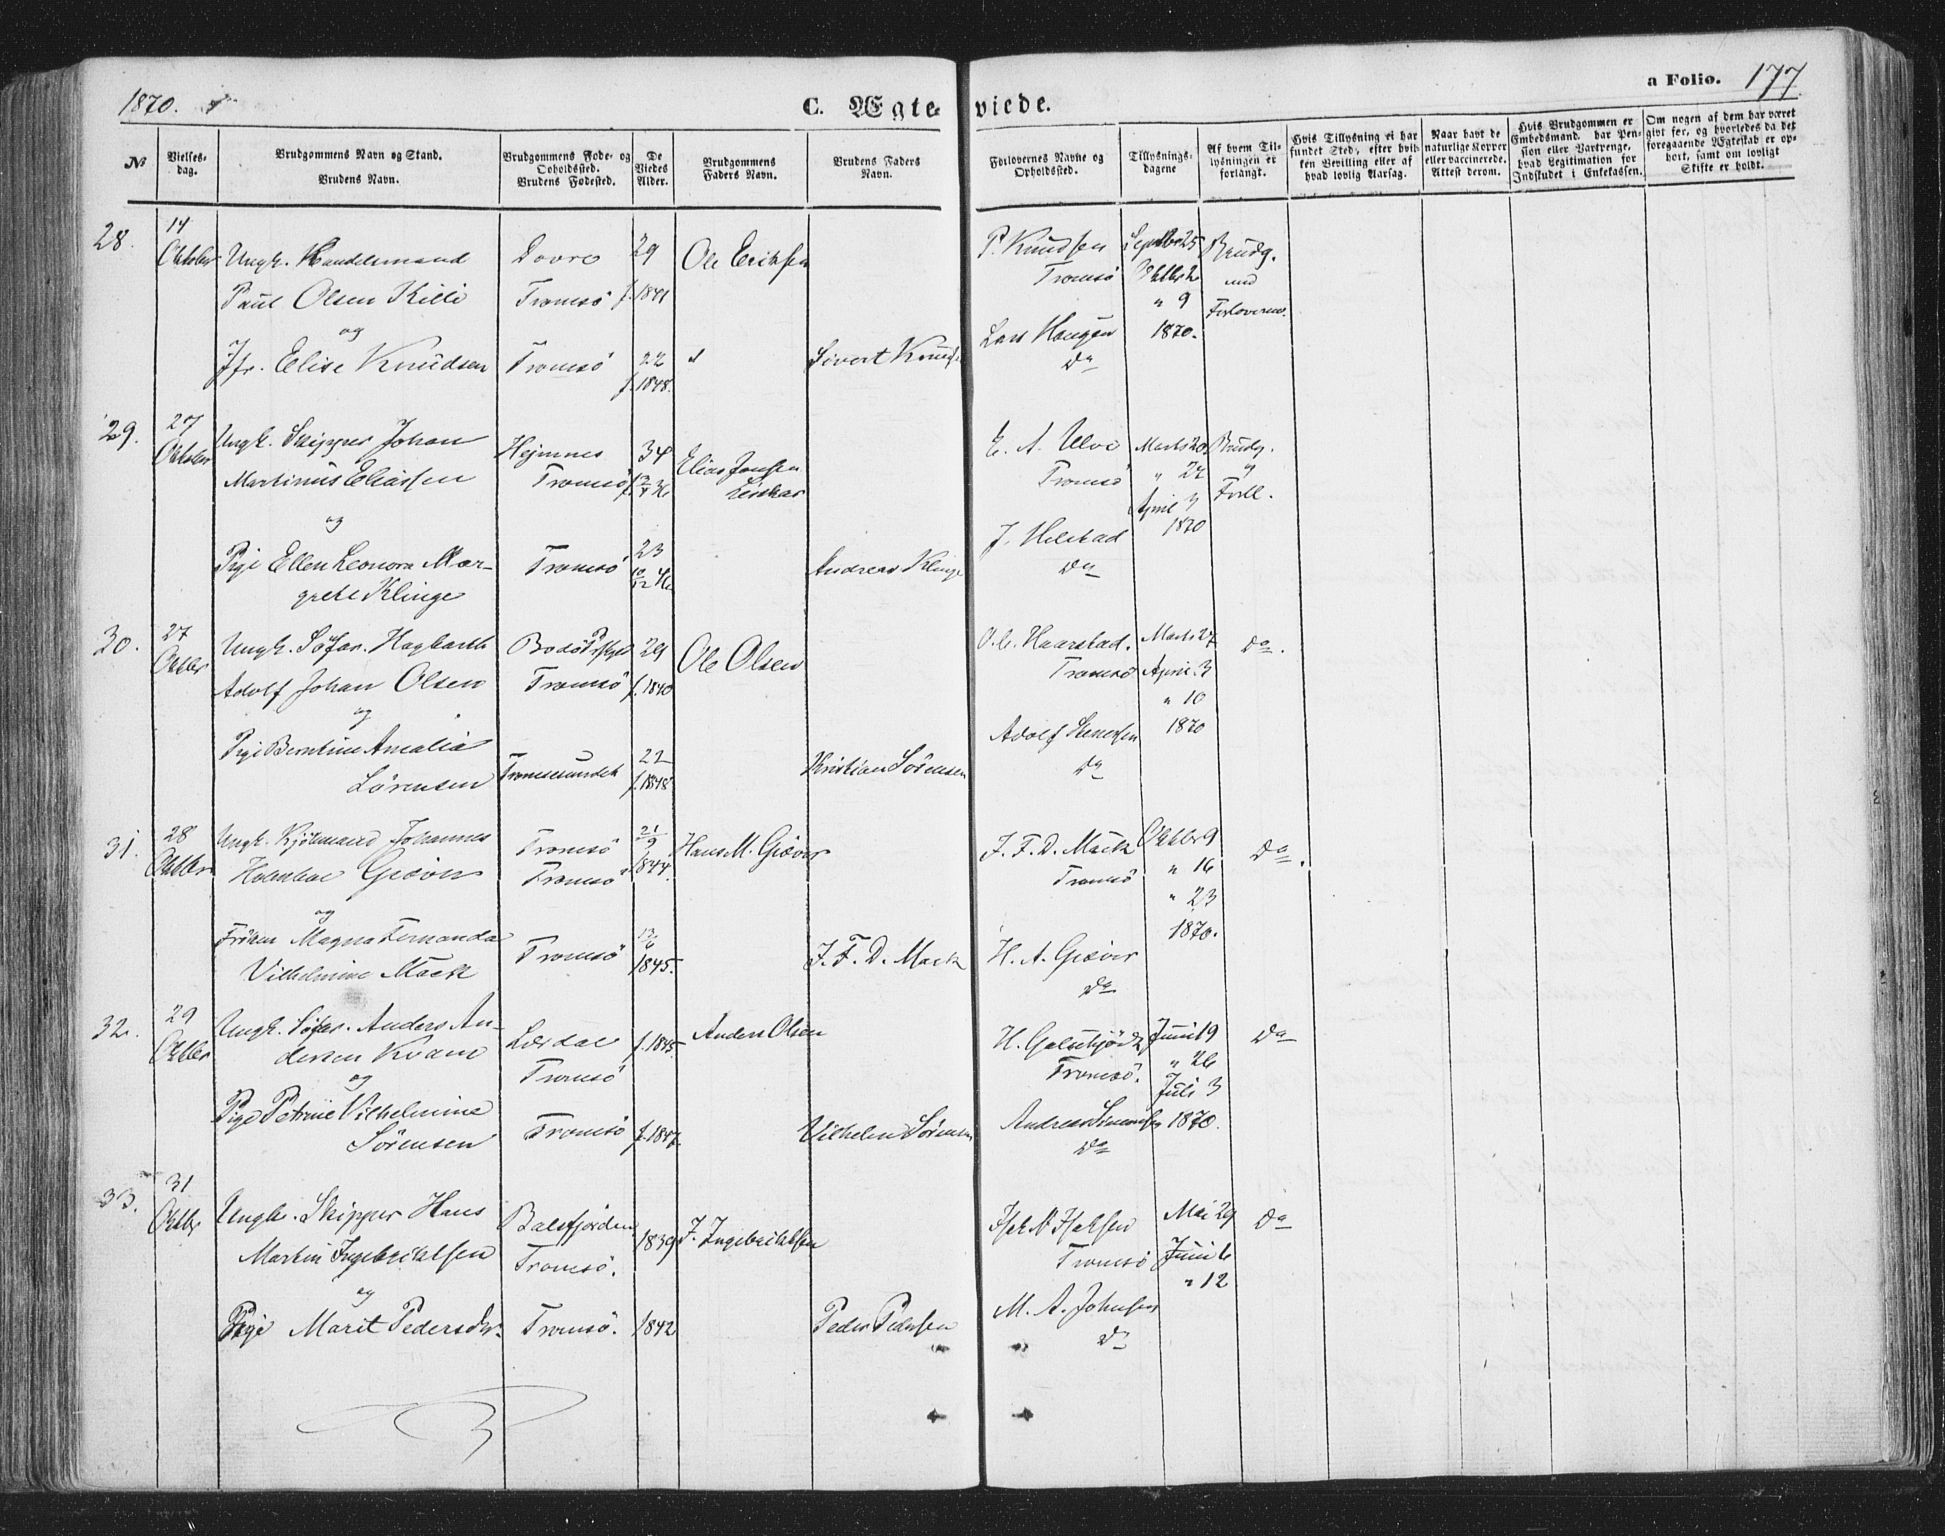 1870.
C. Ægte viede.
a Folio. 177
No
Vielses-dag.
Brudgommens Navn og Stand.
Brudens Navn.
Brudgommens Føde- og Opholdssted.
Brudens Fødested.
De Viedes Alder.
Brudgommens Faders Navn.
Brudens Faders Navn.
Forlovernes Navne og Opholdssted.
Tillysnings-dagene
Af hvem Tillysningen er forlangt.
Hvis Tillysning ei har fundet Sted, efter hvilken Bevilling eller af hvad lovlig Aarsag.
Naar havt de naturlige Kopper eller vaccinerede. Attest derom.
Hvis Brudgommen er Embedsmand, har Pension eller Vartpenge, hvad Legitimation for Indskudet i Enkekassen.
Om nogen af dem har været givt før, og hvorledes da det foregaaende Ægteskab er ophørt, samt om lovligt Skifte er holdt.
28.
14 Oktober
Ungk. Handelsmand
Paul Olsen Killi
og
Jfr. Elise Knudsen
Dovre
Tromsö
Tromsö
29
f. 1841
22
f. 1848.
Ole Eriksen
Sivert Knuds
P. Knudsen
Tromsö
Lars Haugen
Do
Septbr 25
Oktbr 2
" 9
1870.
Brudg.
med
Forloverne.
29.
27 Oktober
Ungk. Skipper Johan
Martinus Eliassen
og
Pige Ellen Leonora Mar-
grete Klinge
Hejmnes
Tromsö
Tromsö
34
23
10/12 46
Elias Jansen
Andreas Klinge
E. A. Ulve
Tromsö
J. Helstad
Do
Marts 20
" 27
April 3
1870
Brudg.
og
Forll.
30.
27 Oktbr
Ungk. Söfar. Hagbarth
Adolf Johan Olsen
og
Pige Berntine Amalia
Sörensen
Bodö
Tromsö
Tromsesundet
29
f. 1840
22
f. 1848
Ole Olsen
Kristian Sörensen
O. C. Haarstad.
Tromsö
Adolf
Do
Marts 27
April 3
" 10
1870
Do.
31.
28 Oktbr
Ungk. Kjöbmand Johannes
Holmboe Giæver
og
Fröken Magna Fernanda
Vilhelmine Mack
Tromsö
Tromsö
Tromsö
21/9
1844.
13/6
1845.
Hans M. Giæver
J. F. D. Mack
J. F. D. Mack
Tromsö
H. A. Giæver
Do
Oktbr 9
" 16
" 23
1870.
Do.
32.
29 Oktbr
Ungk. Söfar. Anders An-
dersen Kvam
og
Pige Petrine Vilhelmine
Sörensen
Lærdal
Tromsö
Tromsö
f. 1845.
f. 1847.
Anders Olsen
Vilhelm Sörensen
H.
Tromsö.
Andreas
Do
Juni 19
" 26
Juli 3
1870.
Do
33.
31 Oktbr
Ungk. Skipper Hans
Martin Ingebriktsen
og
Pige Marit Pedersdr.
Balsfjorden
Tromsö.
Tromsö.
1839
1842
J. Ingebriktsen
Peder Pedersen
Isak N. Isaksen
Tromsö
M. A. Johnsen
Do
Mai 29
Juni 6
" 12
Do